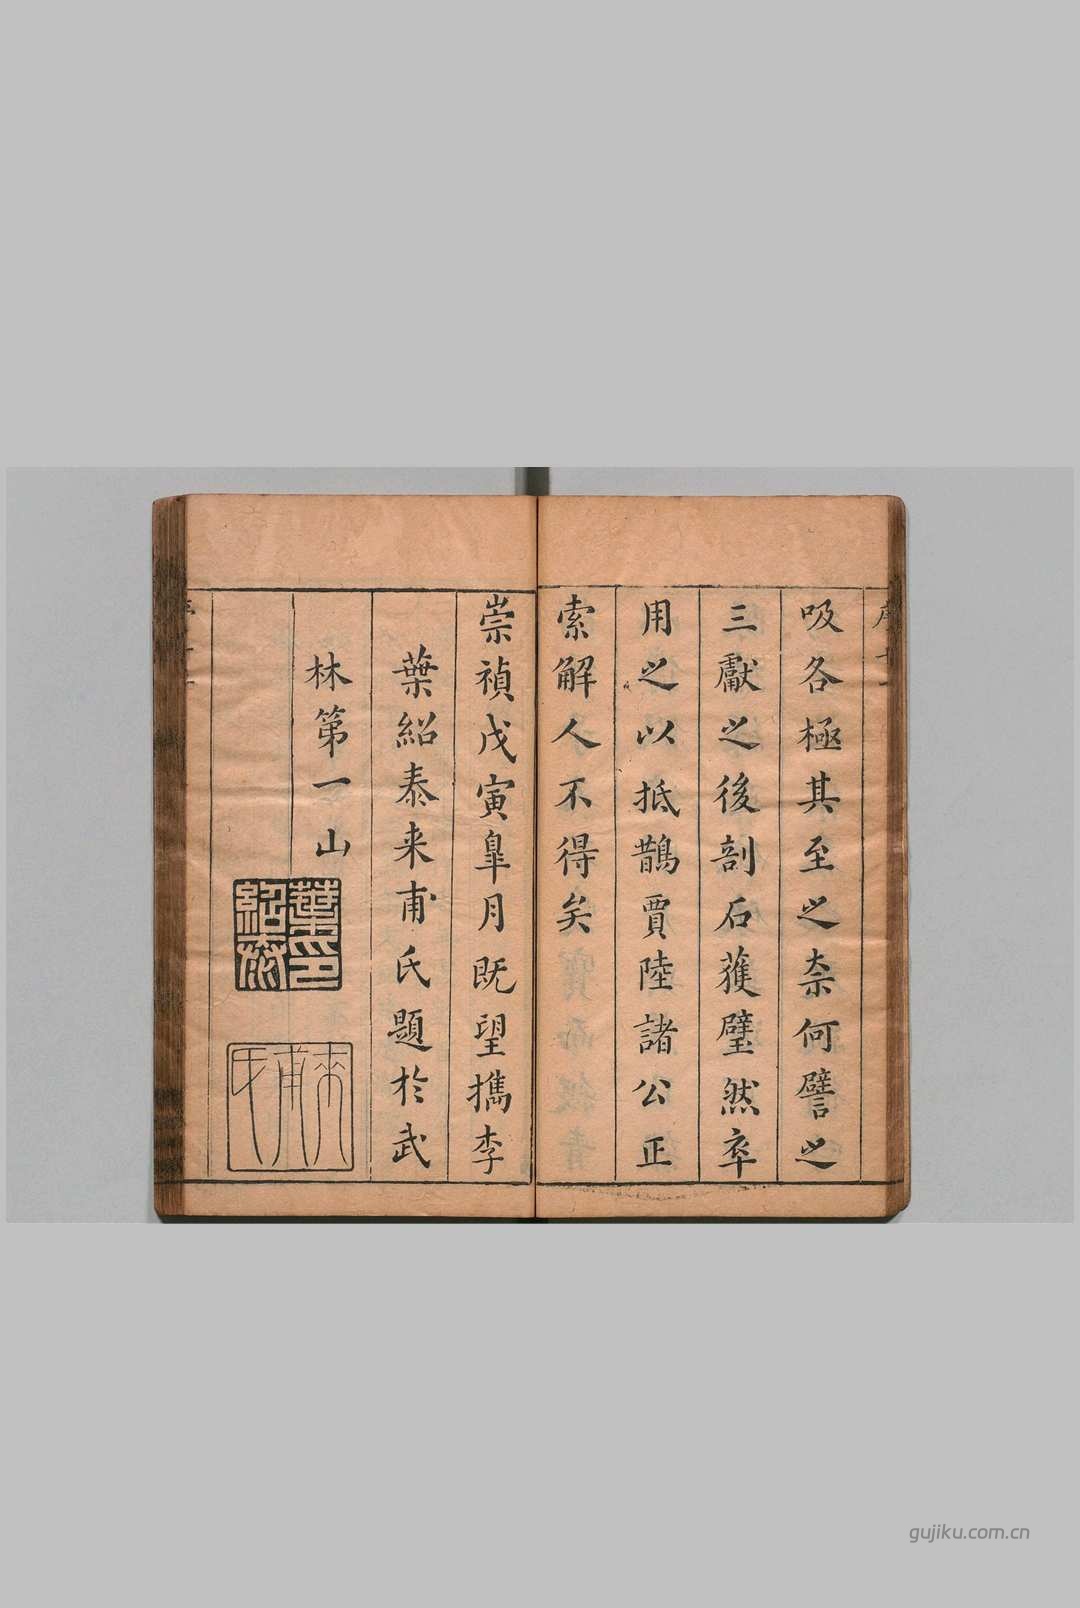 吸各極其至之柰何譬之
三獻之後剖石獲璧然卒
用之以抵鵲賈陸諸公正
索解人不得矣
崇禎戊寅皐月既望擕李
葉紹泰来甫氏題於武
林第一山
葉紹泰印
来甫氏
gujiku.com.cn